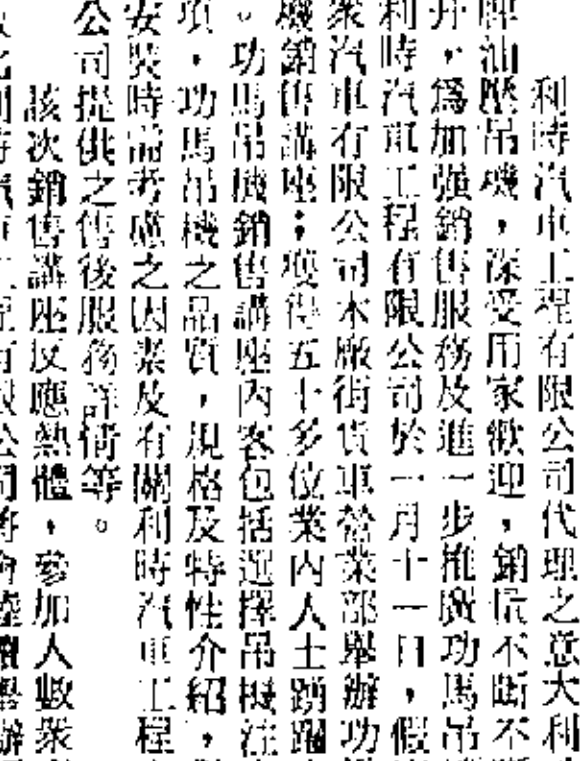 利時汽車工程有限公司代理之意大利
牌油壓吊機，深受用家歡迎，銷量不斷不
升，爲加強銷售服務及進一步推廣功馬吊
利時汽車工程有限公司於一月十一日，假
衆汽車有限公司木廠街貨車營業部舉辦功
機銷售講座；獲得五十多位業內人士踴躍
。功馬吊機銷售講座內容包括選擇吊機注
項，功馬吊機之品質，規格及特性介紹，
安裝時需考慮之因素及有關利時汽車工程
公司提供之售後服務詳情等。
該次銷售講座反應熱體，參加人數衆